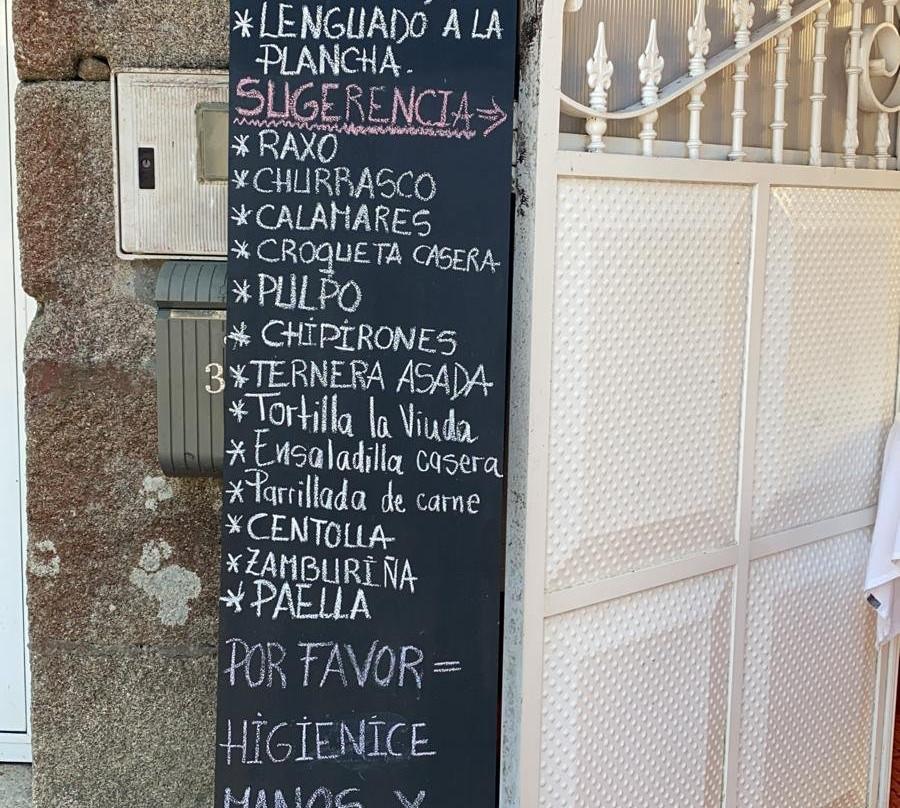 * LENGUADO A LA
PLANCHA.
SUGERENCIA →
* RAXO
* CHURRASCO
* CALAMARES
* CROQUETA CASERA
* PULPO
* CHIPIRONES
* TERNERA ASADA
* Tortilla la Viuda
* Ensaladilla casera
* Parrillada de carne
* CENTOLLA
* ZAMBURIÑA
* PAELLA
POR FAVOR =
HIGIENICE
MANOS Y
3